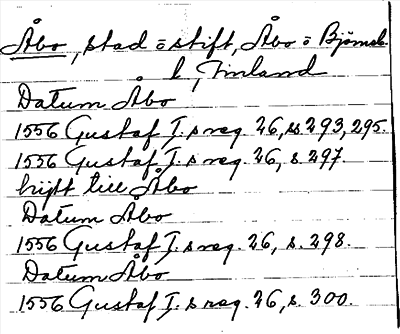 Åbo, stad o stift, Åbo o Björneb.
l, Finland
Datum Åbo
1556 Gustaf I.s reg. 26, ss 293, 295.
1556 Gustaf I.s reg. 26, s. 297.
till Åbo
Datum Åbo
1556 Gustaf I.s reg. 26, s. 298.
Datum Åbo
1556 Gustaf I.s reg. 26, s. 300.